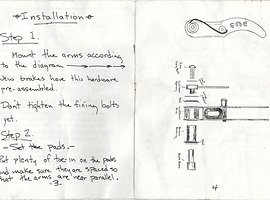 Installation
Step 1.
Mount the arms according
to the diagram
New brakes have this hardware
pre-assembled.
Dont tighten the fixing bolts
yet.
Step 2.
-Set the pads.-
Put plenty of toe-in on the pads
and make sure they are spaced so
that the arms are near parallel.
-3-
4